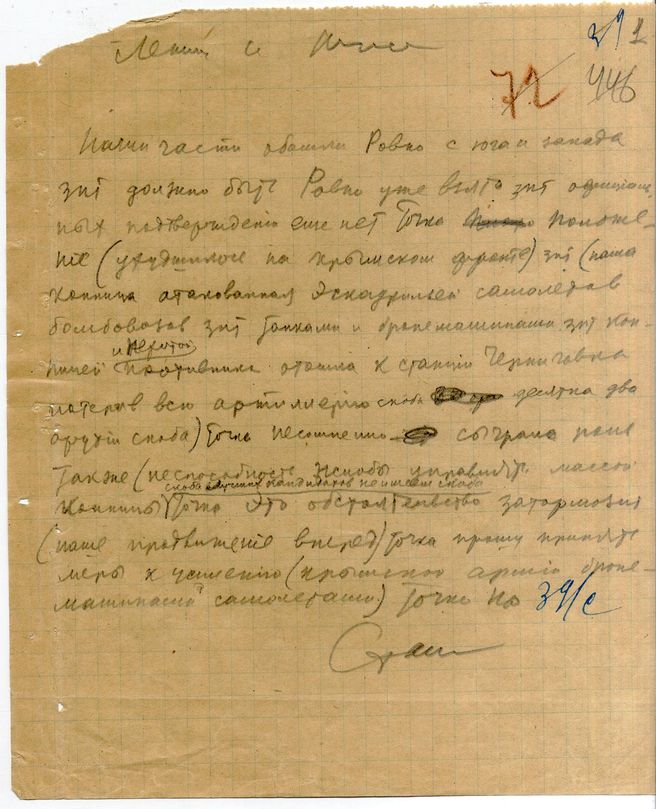 Ленин
39 1
72
446
Наши части обошли Ровно с юга и запада
зпт должно быть Ровно уже взято зпт официаль
ных подтверждений еще нет Точка положе-
ние (ухудшилось на крымском фронте) зпт (наша
конница атакованная эскадрильей самолетов
бомбовозов зпт танками и бронемашинами зпт кон
и пехотой
ницей противника отошла к станции Черниговка
потеряв всю артиллерию скоба десятка два
орудий скоба) точка несомненно сыграла роль
также (неспособность Жлобы управлять массой
скоба лучших кандидатов не имеем скоба
конницы) Точка Это обстоятельство затормозит
(наше продвижение вперед) точка прошу принять
меры к усилению (крымской армии броне-
машинами самолетами) Точка № 39/с
Сталин